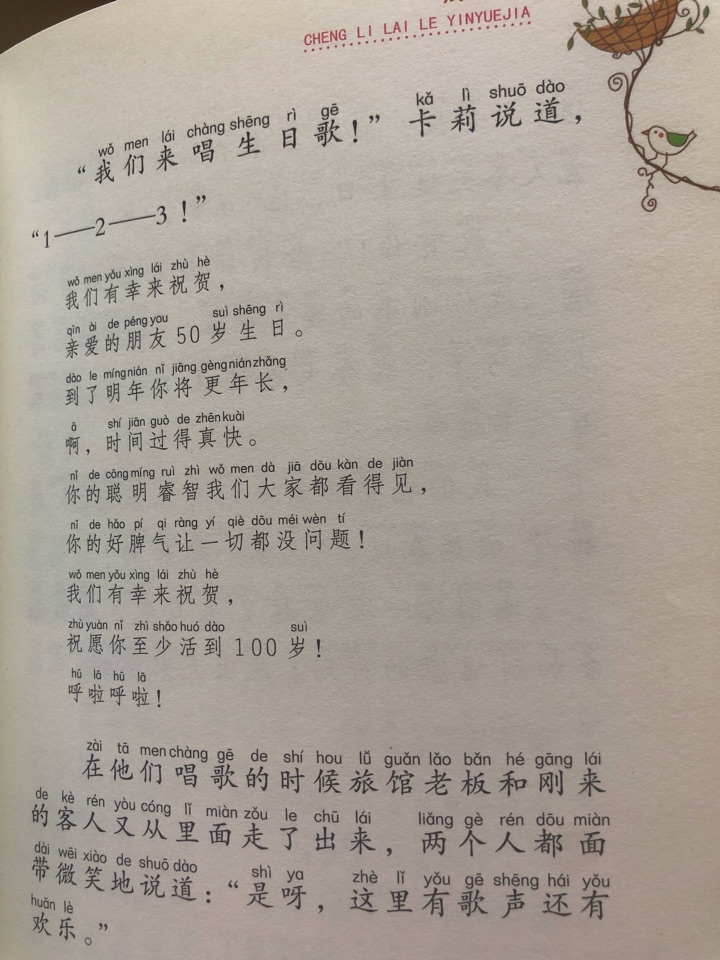 CHENG LI LAI LE YINYUEJIA
wǒ men lái chàng shēng rì gē kǎ lì shuō dào
“我们来唱生日歌！”卡莉说道，
“1——2——3！”
wǒ men yǒu xìng lái zhù hè
我们有幸来祝贺，
qīn ài de péng you suì shēng rì
亲爱的朋友50岁生日。
dào le míng nián nǐ jiāng gèng nián zhǎng
到了明年你将更年长，
ā shí jiān guò de zhēn kuài
啊，时间过得真快。
nǐ de cōng míng ruì zhì wǒ men dà jiā dōu kàn de jiàn
你的聪明睿智我们大家都看得见，
nǐ de hǎo pí qi ràng yí qiè dōu méi wèn tí
你的好脾气让一切都没问题！
wǒ men yǒu xìng lái zhù hè
我们有幸来祝贺，
zhù yuàn nǐ zhì shǎo huó dào suì
祝愿你至少活到100岁！
hū lā hū lā
呼啦呼啦！
zài tā men chàng gē de shí hou lǚ guǎn lǎo bǎn hé gāng lái
在他们唱歌的时候旅馆老板和刚来
de kè rén yòu cóng lǐ miàn zǒu le chū lái liǎng gè rén dōu miàn
的客人又从里面走了出来，两个人都面
dài wēi xiào de shuō dào shì ya zhè lǐ yǒu gē shēng hái yǒu
带微笑地说道：“是呀，这里有歌声还有
huān lè
欢乐。”